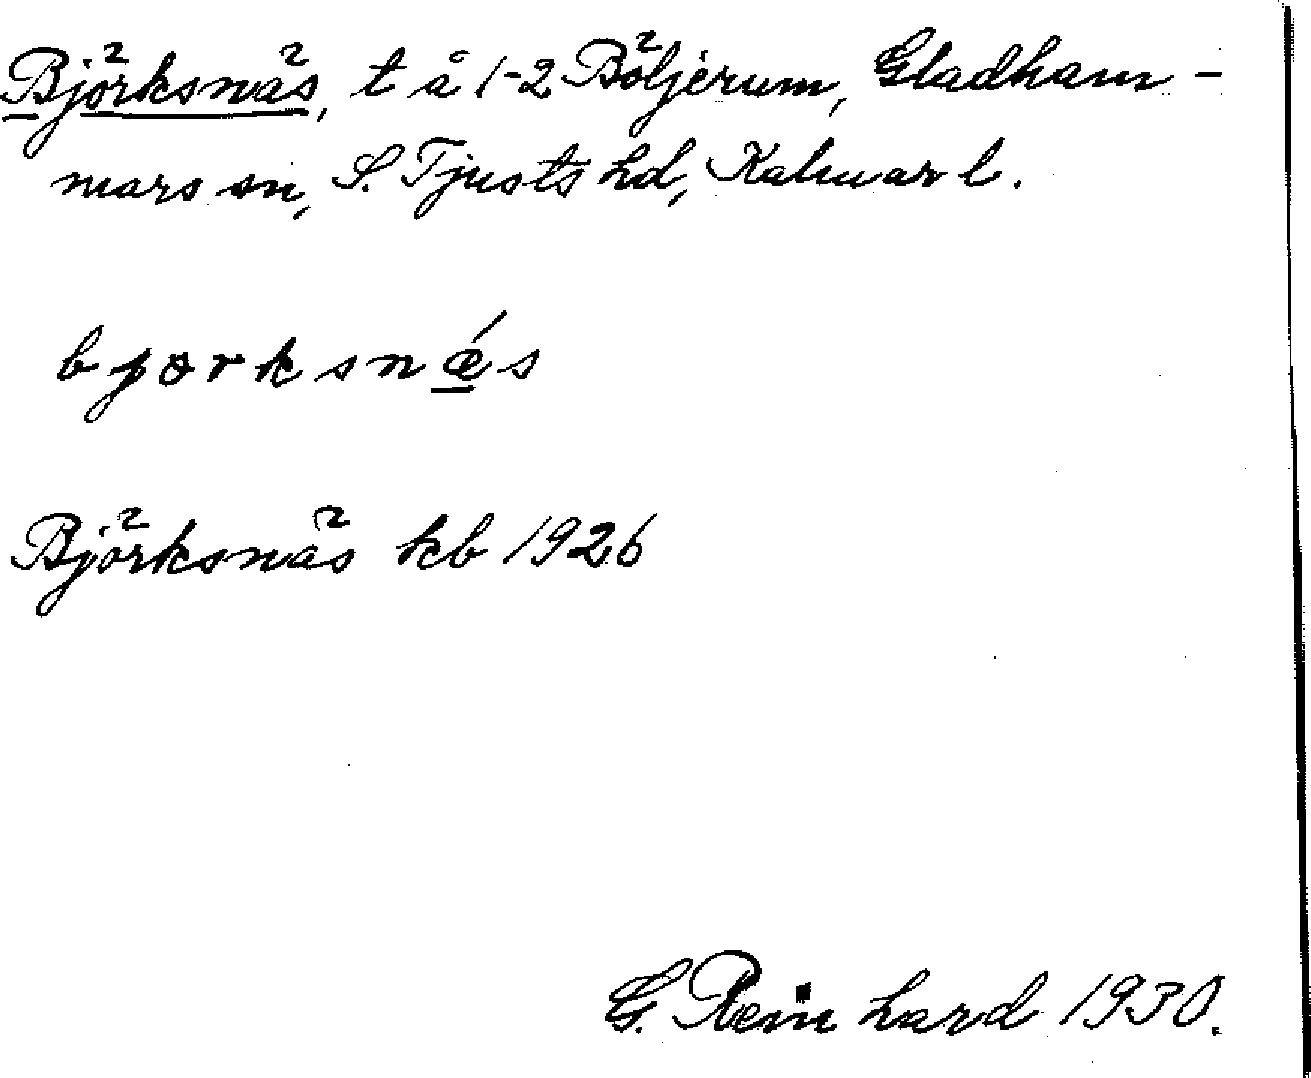 Björksnäs, t å 1-2 Böljerum, Gladham-
mars sn, S. Tjusts hd, Kalmar l.
bjorksnǽs
Björksnäs kb 1926
G. Reinhard 1930.